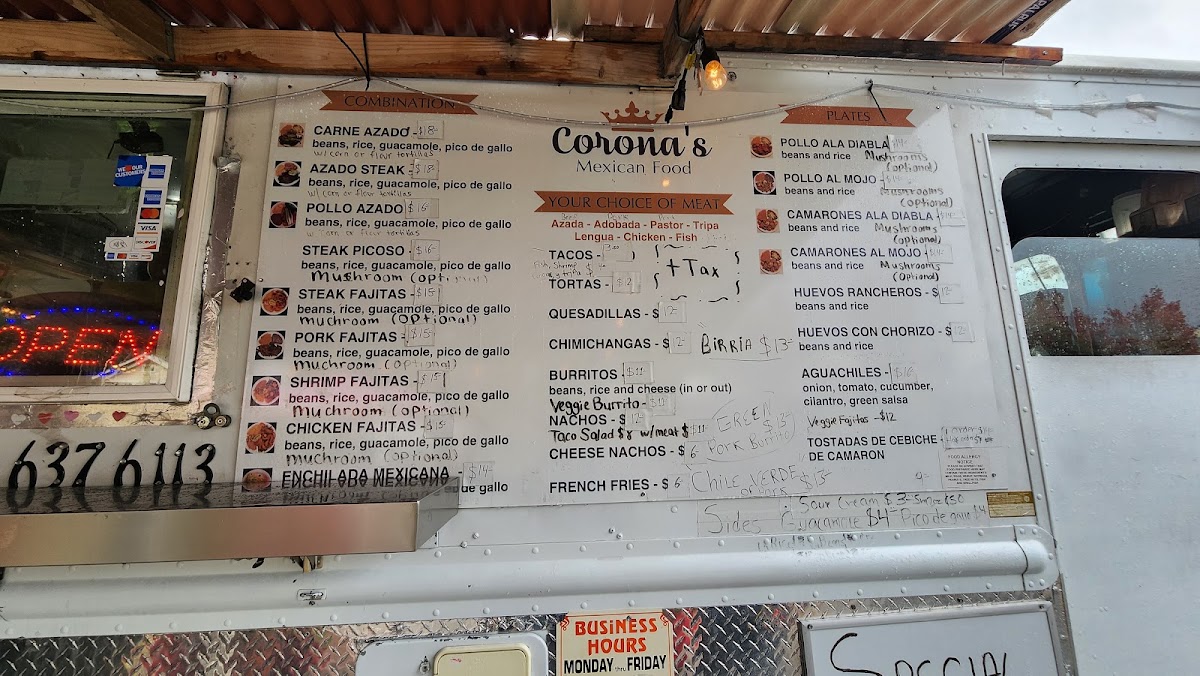 COMBINATION
CARNE AZADO - $18-
beans, rice, guacamole, pico de gallo
w/ corn or flour tortillas
AZADO STEAK - $18-
beans, rice, guacamole, pico de gallo
w/ corn or flour tortillas
POLLO AZADO $16-
beans, rice, guacamole, pico de gallo
w/ corn or flour tortillas
STEAK PICOSO - $16-
beans, rice, guacamole, pico de gallo
Mushroom (optional)
STEAK FAJITAS - $15-
beans, rice, guacamole, pico de gallo
muchroom (optional)
PORK FAJITAS - $15-
beans, rice, guacamole, pico de gallo
muchroom (optional)
SHRIMP FAJITAS - $15
beans, rice, guacamole, pico de gallo
Muchroom (optional)
CHICKEN FAJITAS - $15
beans, rice, guacamole, pico de gallo
muchroom (optional)
ENCHILADA MEXICANA - $14-
de gallo
Corona's
Mexican Food
YOUR CHOICE OF MEAT
Azada - Adobada - Pastor - Tripa
Lengua - Chicken - Fish
TACOS -
TORTAS -
+ Tax
QUESADILLAS - $
CHIMICHANGAS - $
BIRRIA $13-
BURRITOS - $11-
beans, rice and cheese (in or out)
Veggie Burrito - $11
NACHOS - $
Taco Salad $8 w/meat $11-
GREEN
Pork Burrito $13-
CHEESE NACHOS - $ 6-
FRENCH FRIES - $ 6-
CHILE VERDE
OF PORK $13-
PLATES
POLLO ALA DIABLA
beans and rice Mushrooms
(optional)
POLLO AL MOJO -
beans and rice Mushrooms
(optional)
CAMARONES ALA DIABLA -
beans and rice Mushrooms
(optional)
CAMARONES AL MOJO -
beans and rice Mushrooms
(optional)
HUEVOS RANCHEROS - $
beans and rice
HUEVOS CON CHORIZO - $
beans and rice
AGUACHILES -
onion, tomato, cucumber,
cilantro, green salsa
Veggie Fajitas - $12
TOSTADAS DE CEBICHE -
DE CAMARON
FOOD ALLERGY
NOTICE
Sides Sour Cream $3-
Guacamole $4- Pico de gallo $4
OPEN
VISA
DISCOVER
637 6113
BUSINESS
HOURS
MONDAY thru FRIDAY
Special